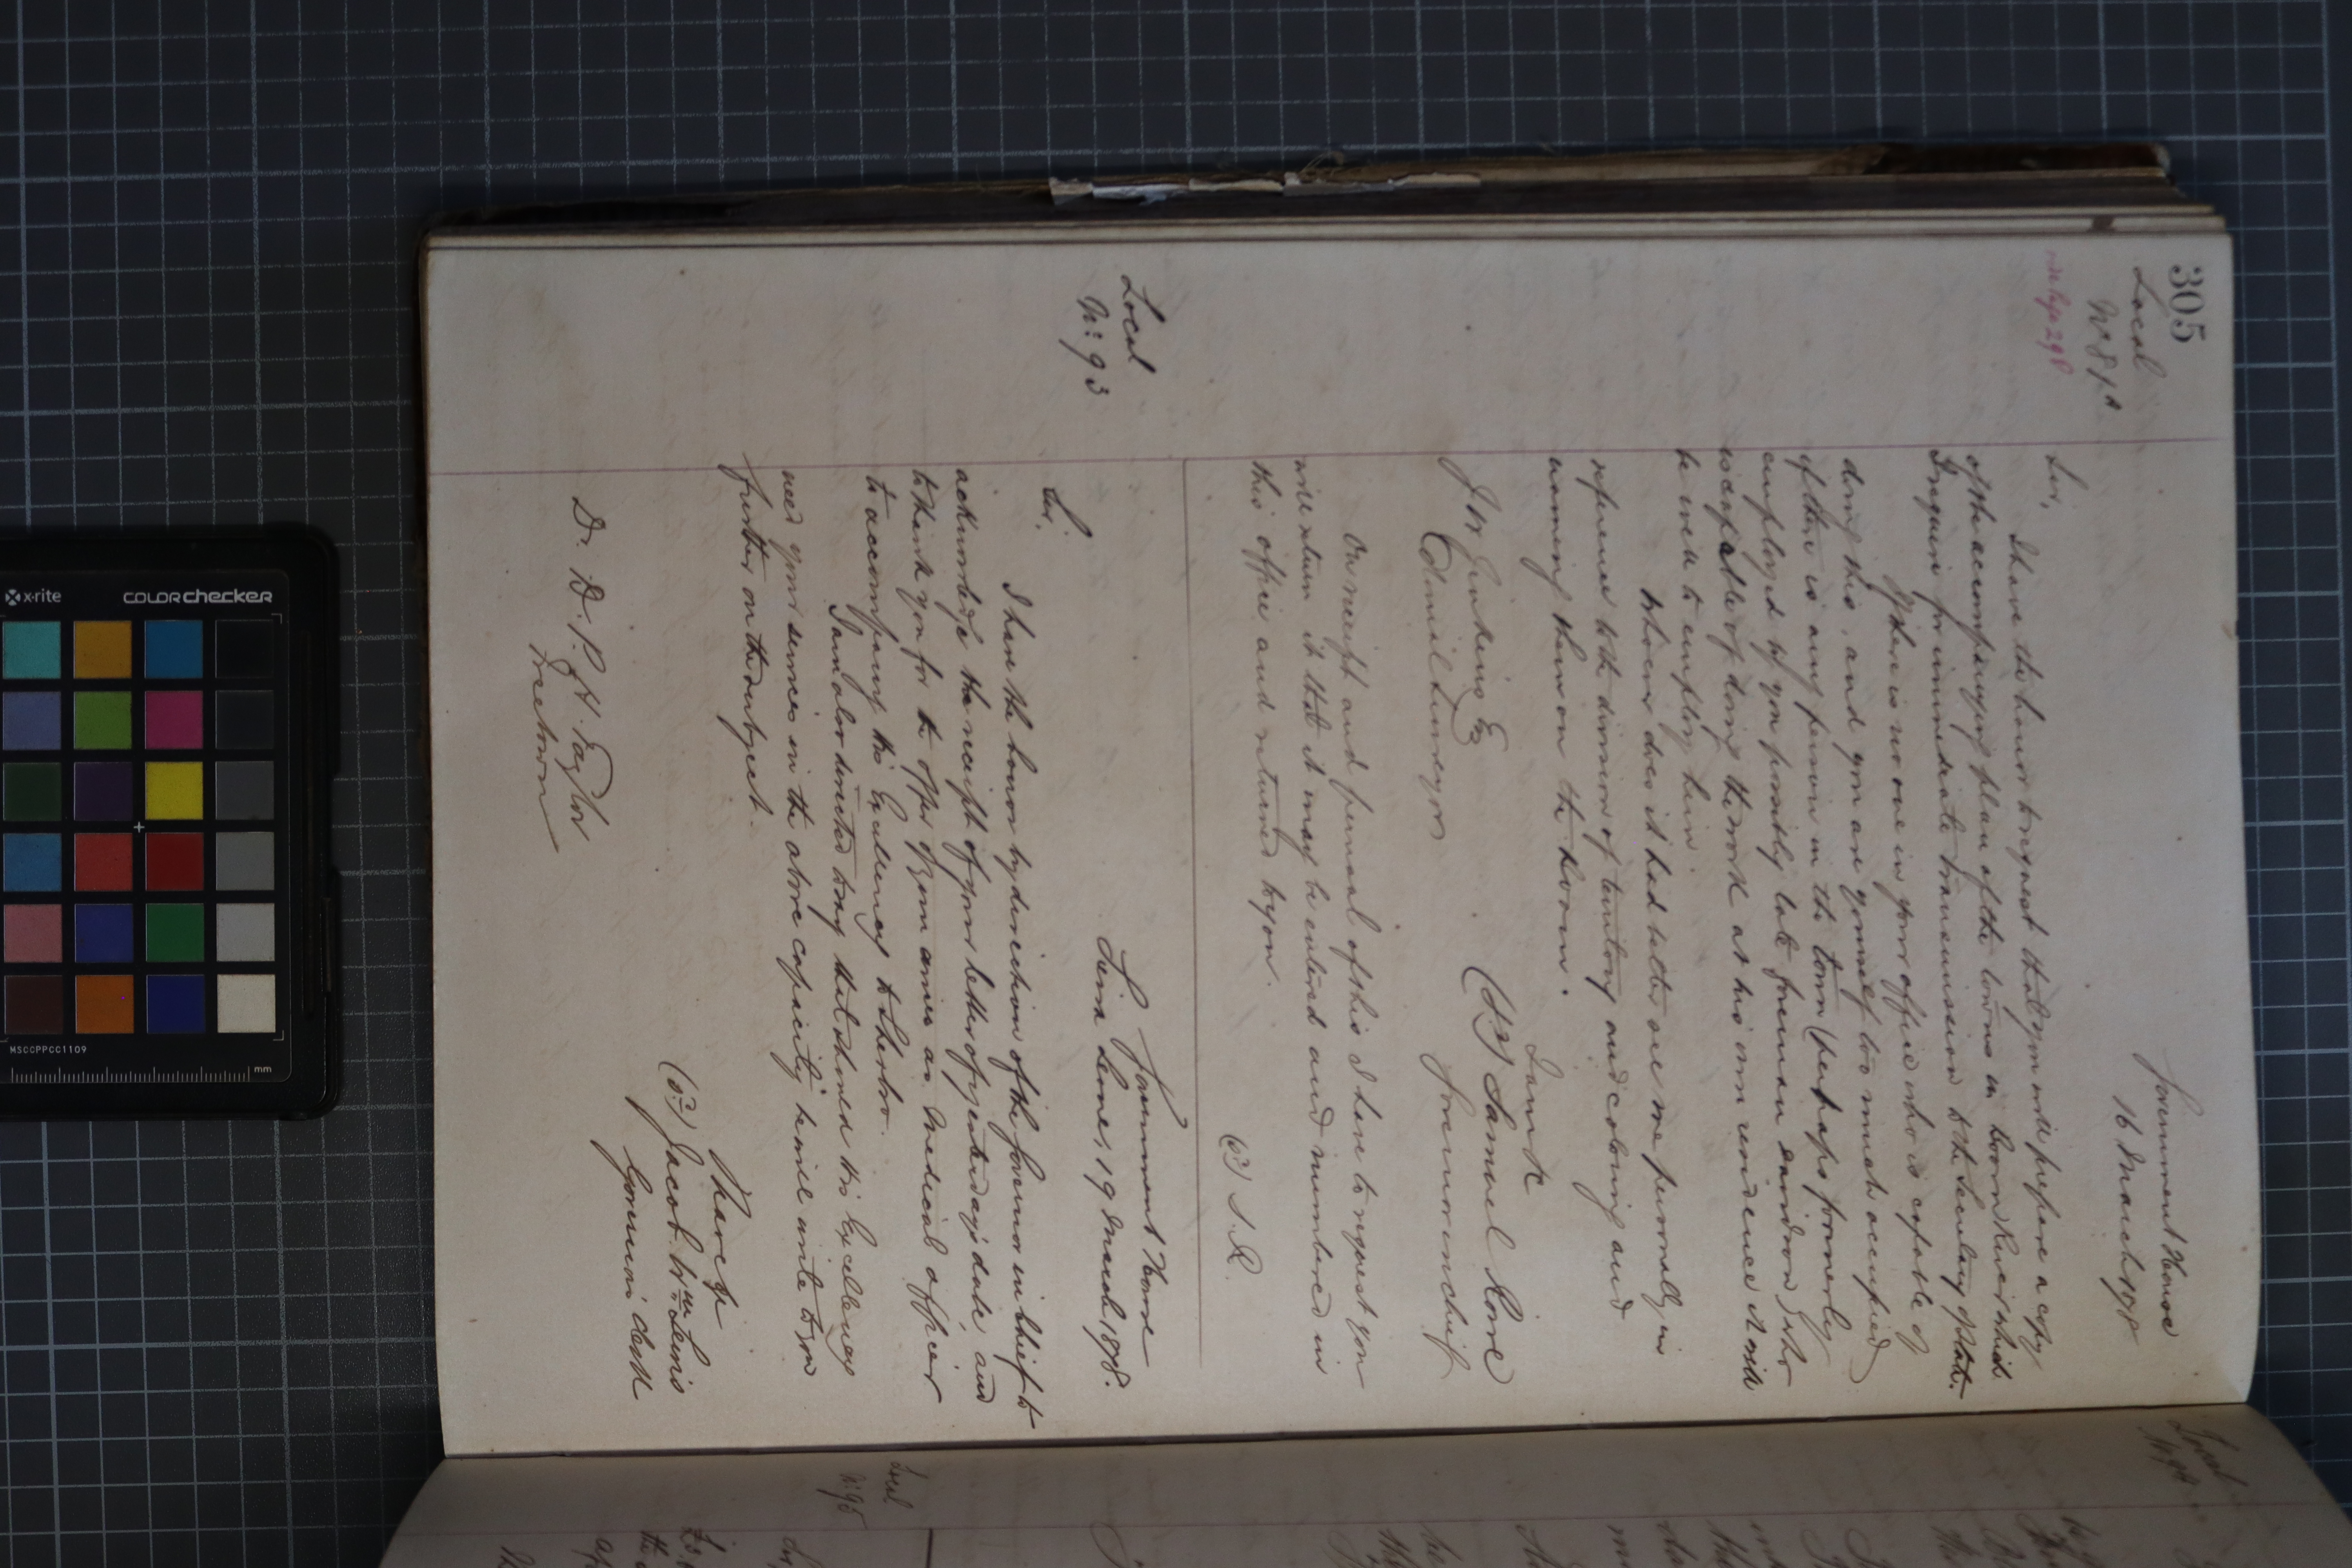 305
Local
Nº 87A
vide page 298
Government House
16 March 1878
Sir,
I have the honor to request that you will prepare a copy
of the accompanying plan of the towns in Boom River which
I require for immediate transmission to the Secretary of State.
If there is no one in your office who is capable of
doing this, and you are yourself too much occupied
if there is any person in the town (perhaps formerly
employed by you possibly late foreman who
is capable of doing the work at his own residence it will
be well to employ him.
Whoever does it had better see me personally in
reference to the division of territory and coloring and
naming them on the Boom.
I am &c
(sd) Samuel Rowe
Governor in chief
J W Jenkins Esq
Colonial Surveyor
On receipt and perusal of this I have to request you
will return it that it may be entered and numbered in
this office and returned to you.
(sd) S. R.
Local
Nº 93
Government House
Sierra Leone, 19 March 1878.
Sir,
I have the honor by direction of the Governor in Chief to
acknowledge the receipt of your letter of yesterday's date, and
to thank you for the offer of your services as Medical officer
to accompany His Excellency to Sherbro.
I am also directed to say that should His Excellency
need your services in the above capacity he will write to you
further on the subject.
I have &c
(sd) Jacob Wm Lewis
Governor's Clerk
D. D. P. H. Taylor
Freetown
Local
Nº 94
Local
Nº 95